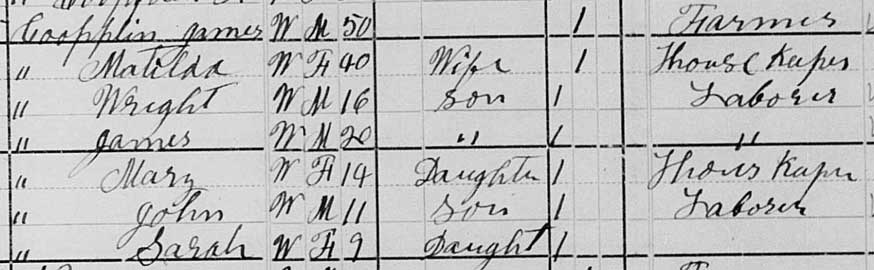 Coopplin James W M 50 1 Farmer
" Matilda W F 40 Wife 1 House Keper
" Wright W M 16 Son 1 Laborer
" James W M 20 " 1 "
" Mary W F 14 Daughter 1 Hous Keper
" John W M 11 Son 1 Laborer
" Sarah W F 9 Daught 1